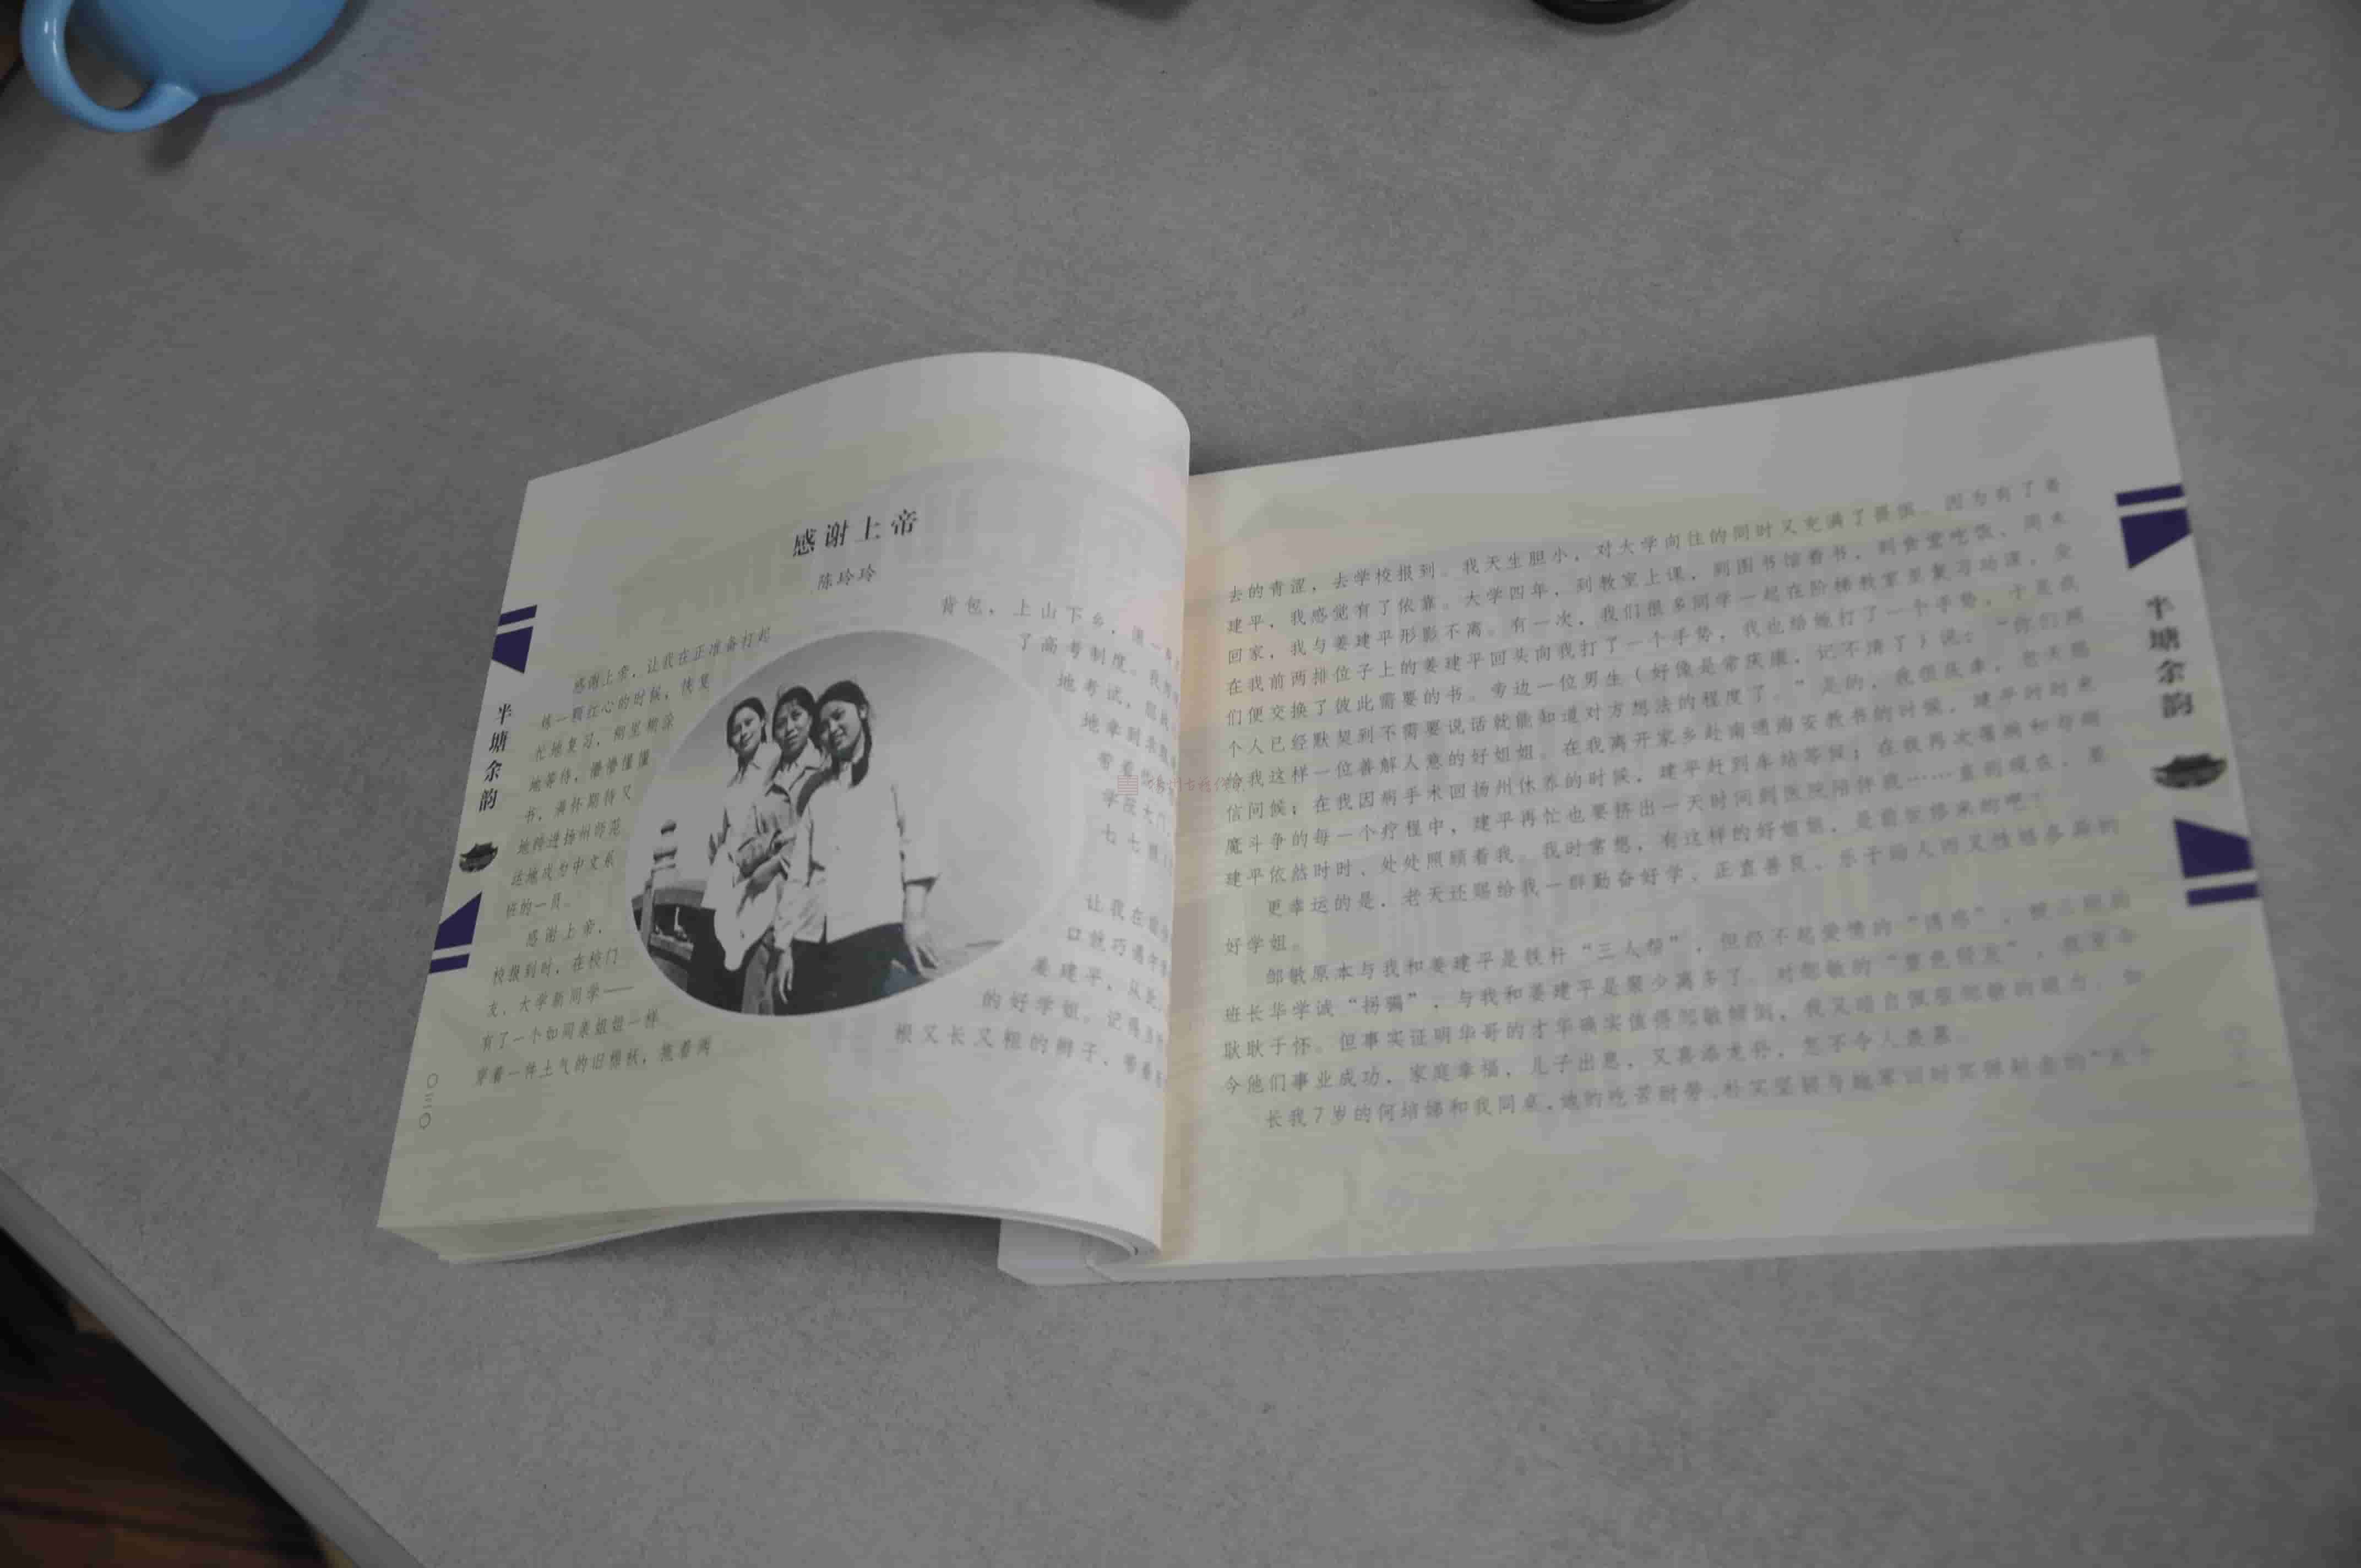 感谢上帝
陈玲玲
感谢上帝，让我在正准备打起
背包，上山下乡，
炼一颗红心的时候，恢复
了高考制度。我
忙地复习，糊里糊涂
地考试，
地等待，懵懵懂懂
地拿到录取
书，满怀期待又
带着
地跨进扬州师范
学院大门，
运地成为中文系
七七
班的一员。
感谢上帝，
让我在
校报到时，在校门
口就巧遇
友、大学新同学——
姜建平，从此
有了一个如同亲姐姐一样
的好学姐。记得
穿着一件土气的旧棉袄，拖着两
根又长又粗的辫子，带着
半塘余韵
〇三〇
去的青涩，去学校报到。我天生胆小，对大学向往的同时又充满了畏惧。因为有了姜
建平，我感觉有了依靠。大学四年，到教室上课，到图书馆看书，到食堂吃饭，周末
回家，我与姜建平形影不离。有一次，我们很多同学一起在阶梯教室里复习功课，坐
在我前两排位子上的姜建平回头向我打了一个手势，我也给她打了一个手势，于是我
们便交换了彼此需要的书。旁边一位男生（好像是常庆康，记不清了）说：“你们两
个人已经默契到不需要说话就能知道对方想法的程度了。”是的，我很庆幸，老天赐
给我这样一位善解人意的好姐姐。在我离开家乡赴南通海安教书的时候，建平时时来
信问候；在我因病手术回扬州休养的时候，建平赶到车站等候；在我再次罹病和与病
魔斗争的每一个疗程中，建平再忙也要挤出一天时间到医院陪伴我……直到现在，姜
建平依然时时、处处照顾着我。我时常想，有这样的好姐姐，是前世修来的吧！
更幸运的是，老天还赐给我一群勤奋好学、正直善良、乐于助人而又性格多姿的
好学姐。
邹敏原本与我和姜建平是铁杆“三人帮”，但经不起爱情的“诱惑”，被二班的
班长华学诚“拐骗”，与我和姜建平是聚少离多了。对邹敏的“重色轻友”，我至今
耿耿于怀。但事实证明华哥的才华确实值得邹敏倾倒，我又暗自佩服邹敏的眼力。如
今他们事业成功，家庭幸福，儿子出息，又喜添龙孙，怎不令人羡慕。
长我7岁的何培娣和我同桌，她的吃苦耐劳、朴实坚韧与她
半塘余韵